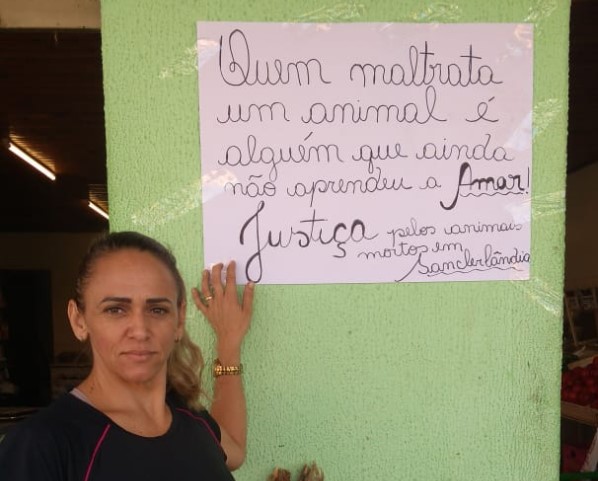 Quem maltrata
um animal é
alguém que ainda
não aprendeu a Amar!
Justiça pelos animais
mortos em
Sanclerlândia